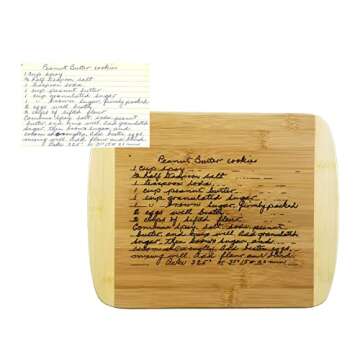 Peanut Butter cookies
1 cup spry
½ half teaspoon salt
1 teaspoon soda
1 cup peanut butter
1 cup granulated sugar
1 " brown sugar, firmly packed
2 eggs well beaten
2 cups of sifted flour
Combine spry, salt, soda, peanut
butter, and mix well. Add granulated
sugar, then brown sugar, and
cream
add beaten eggs,
mixing well. Add flour and blend.
Bake 325°
Peanut Butter cookies
1 cup spry
½ half teaspoon salt
1 teaspoon soda
1 cup peanut butter
1 cup granulated sugar
1 " brown sugar, firmly packed
2 eggs well
2 cups of sifted flour
Combine spry, salt, soda, peanut
butter, and mix well. Add granulated
sugar, then brown sugar, and
cream
add beaten eggs,
mixing well. Add flour and blend.
Bake 325°